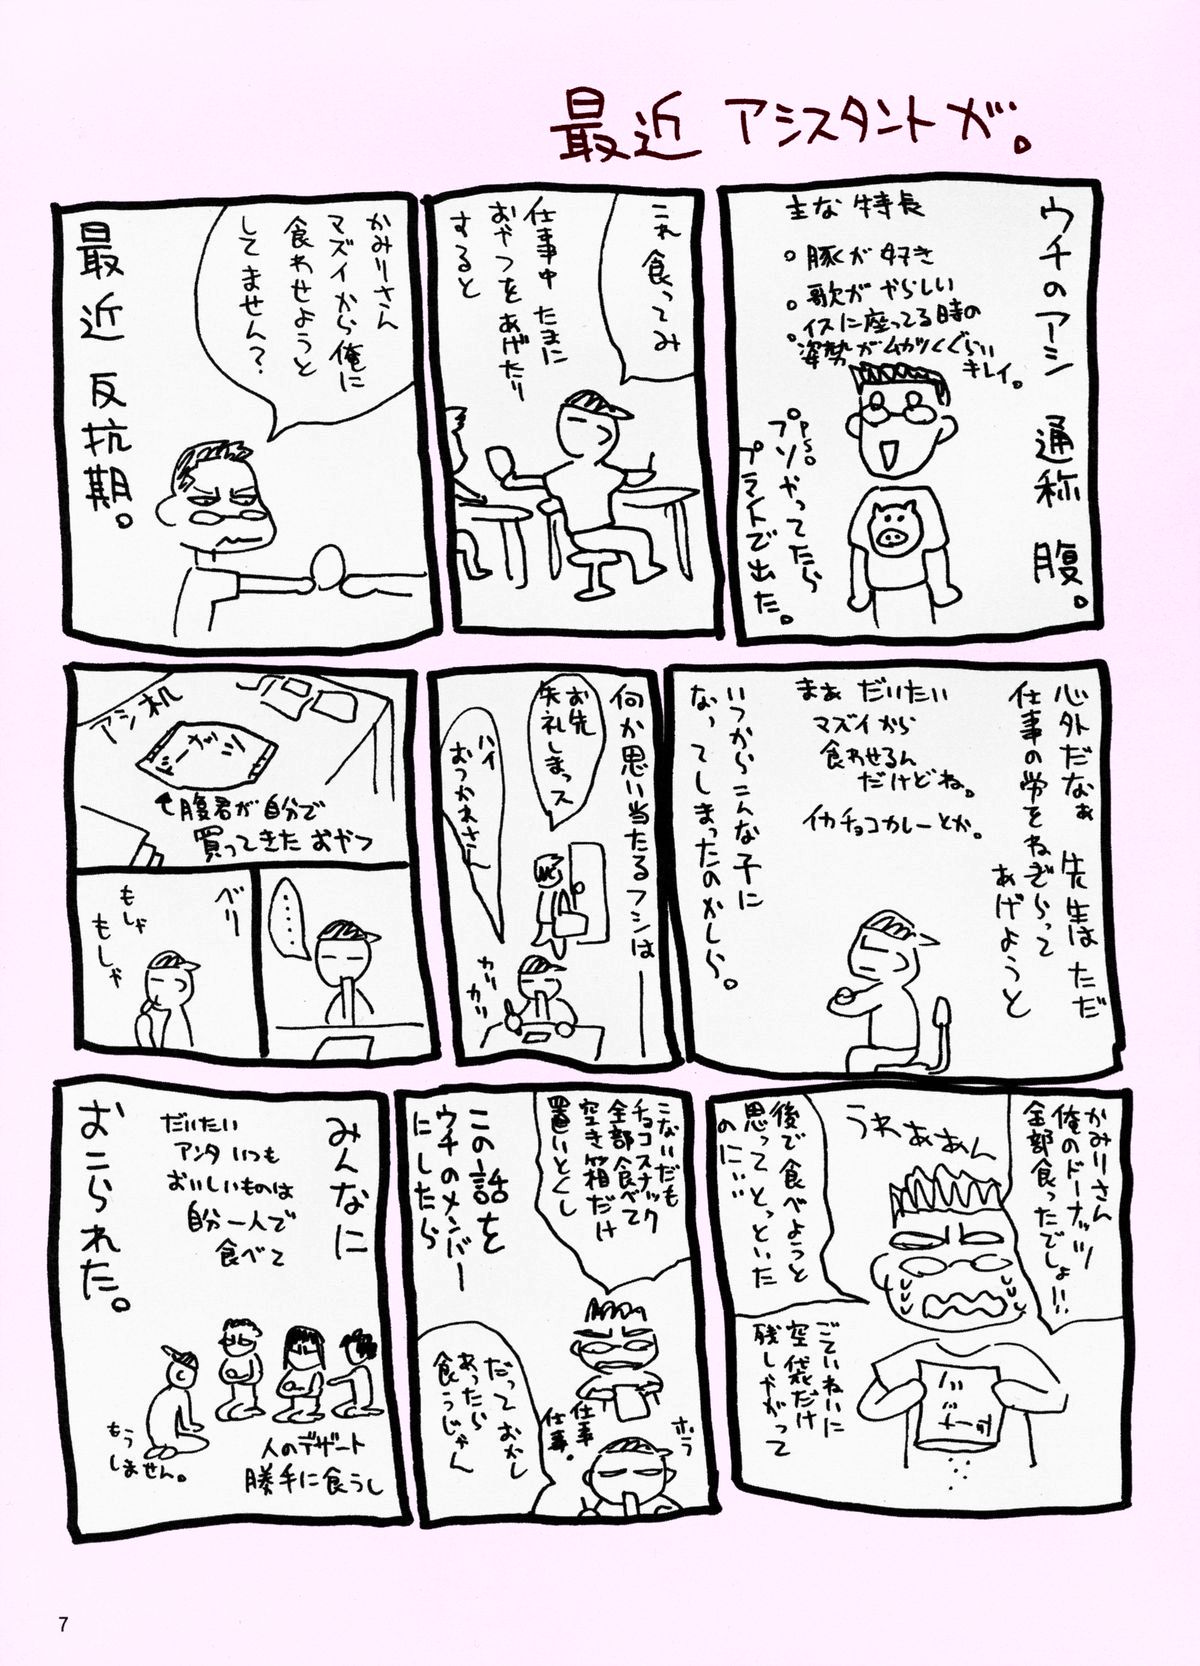 最近 アシスタントが。
ウチのアシ 通称 腹。
主な特長
。豚が好き
。歌がやらしい
。イスに座ってる時の
姿勢がムカツくぐらい
キレイ。
P.S.
プソやってたら
プライトで出た。
これ食ってみ
仕事中 たまに
おやつをあげたり
すると
かみりさん
マズイから俺に
食わせようと
してません?
最近 反抗期。
心外だなぁ 先生はただ
仕事の労をねぎらって
あげようと
まぁ だいたい
マズイから
食わせるん
だけどね。
イカチョコカレーとか。
いつからこんな子に
なってしまったのかしら。
何か思い当たるフシは
お先
失礼しまっス
ハイ
おつかれさん
カリ
カリ
アシ机
↑腹君が自分で
買ってきた おやつ
・・・・
べリー
もしゃ
もしゃ
かみりさん
俺のドーナッツ
全部食ったでしょ!!
うわぁぁぁん
後で食べようと
思ってとっといた
のに…
ごていねいに
空袋だけ
残しやがって
こないだも
チョコスナック
全部食べて
空き箱だけ
置いとくし
この話を
ウチのメンバー
にしたら
ホラ
仕事
仕事。
だって おかし
あったら
食うじゃん
みんなに
だいたい
アンタ いつも
おいしいものは
自分一人で
食べて
人のデザート
勝手に食うし
もう
しません。
おこられた。
7